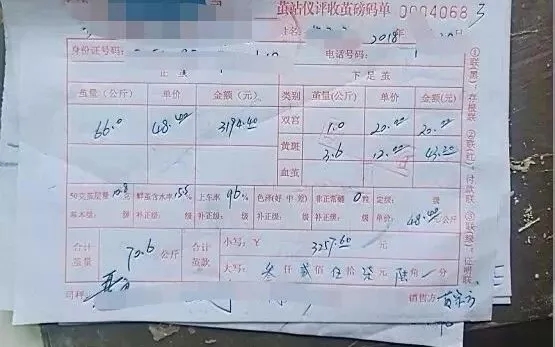 茧站仪评收茧磅码单 0004068 3
2018年
身份证号码: 电话号码:
上茧 下足茧
茧量(公斤) 单价 金额(元) 类别 茧量(公斤) 单价 金额(元)
66.0 48.40 3194.40 双宫 1.0 20.00 20.00
黄斑 3.6 12.00 43.20
血茧
50克茧层量 克 鲜茧含水率 % 上车率 96% 色泽(好 中 较) 非正常蛹 0粒 定级: 级
基本级: 级 补正级: 级 补正级: 级 补正级: 级 补正级: 级 单价 48.40元/公斤
合计茧量 70.6 公斤 合计茧款 小写:¥ 3257.60 元
大写: 叁仟贰佰伍拾柒元陆角一分
司秤: 销售方:
①联(黑):存根联 ②联(红):付款联 ③联(绿):证明联